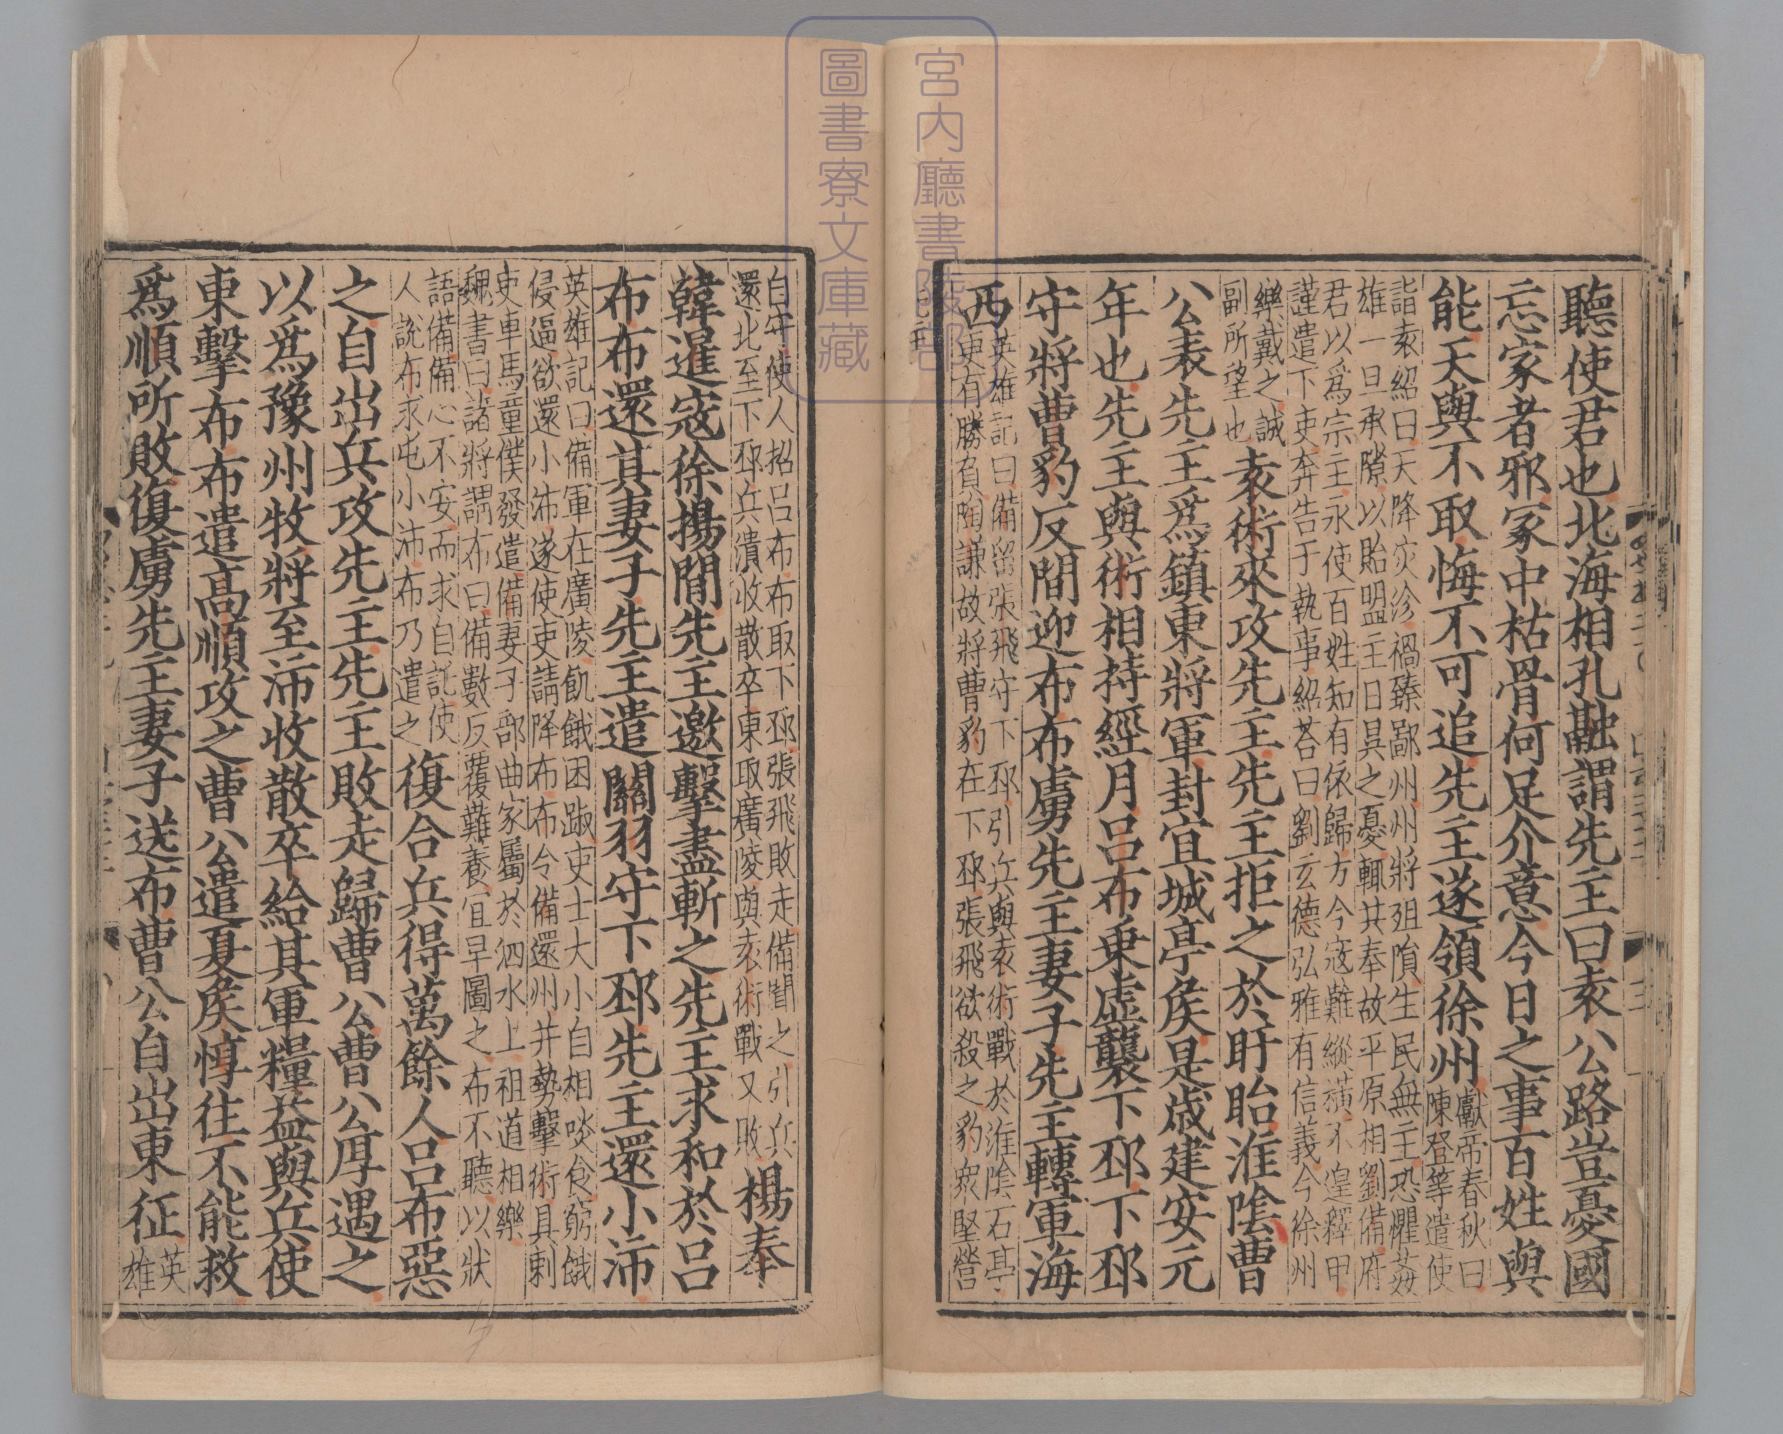 聽使君也北海相孔融謂先主曰袁公路豈憂國
忘家者邪冢中枯骨何足介意今日之事百姓與
能天與不取悔不可追先主遂領徐州獻帝春秋曰
陳登等遣使
詣袁紹曰天降災沴禍臻鄙州州將殂隕生民無主恐懼姦
雄一旦承隙以貽盟主日昃之憂輒共奉故平原相劉備府
君以為宗主永使百姓知有依歸方今寇難縱橫不遑釋甲
謹遣下吏奔告于執事紹荅曰劉玄德弘雅有信義今徐州
樂戴之誠
副所望也袁術來攻先主先主拒之於盱眙淮陰曹
公表先主爲鎮東將軍封宜城亭侯是歲建安元
年也先主與術相持經月呂布乗虛襲下邳下邳
守將曹豹反間迎布布虜先主妻子先主轉軍海
西英雄記曰備留張飛守下邳引兵與袁術戰於淮陰石亭
更有勝負陶謙故將曹豹在下邳張飛欲殺之豹衆堅營
自守使人招呂布布取下邳張飛敗走備聞之引兵
還北至下邳兵潰收散卒東取廣陵與袁術戰又敗楊奉
韓暹寇徐揚間先主邀擊盡斬之先主求和於呂
布布還其妻子先主遣關羽守下邳先主還小沛
英雄記曰備軍在廣陵飢餓困踧吏士大小自相啖食窮餓
侵逼欲還小沛遂使吏請降布布令備還州并勢擊術具刺
吏車馬童僕發遣備妻子部曲家屬於泗水上祖道相樂
魏書曰諸將謂布曰備數反覆難養宜早圖之布不聽以狀
語備備心不安而求自託使
人說布求屯小沛布乃遣之復合兵得萬餘人呂布惡
之自出兵攻先主先主敗走歸曹公曹公厚遇之
以爲豫州牧將至沛收散卒給其軍糧益與兵使
東擊布布遣高順攻之曹公遣夏侯惇往不能救
爲順所敗復虜先主妻子送布曹公自出東征英
雄
宮内廳書陵部
圖書寮文庫藏